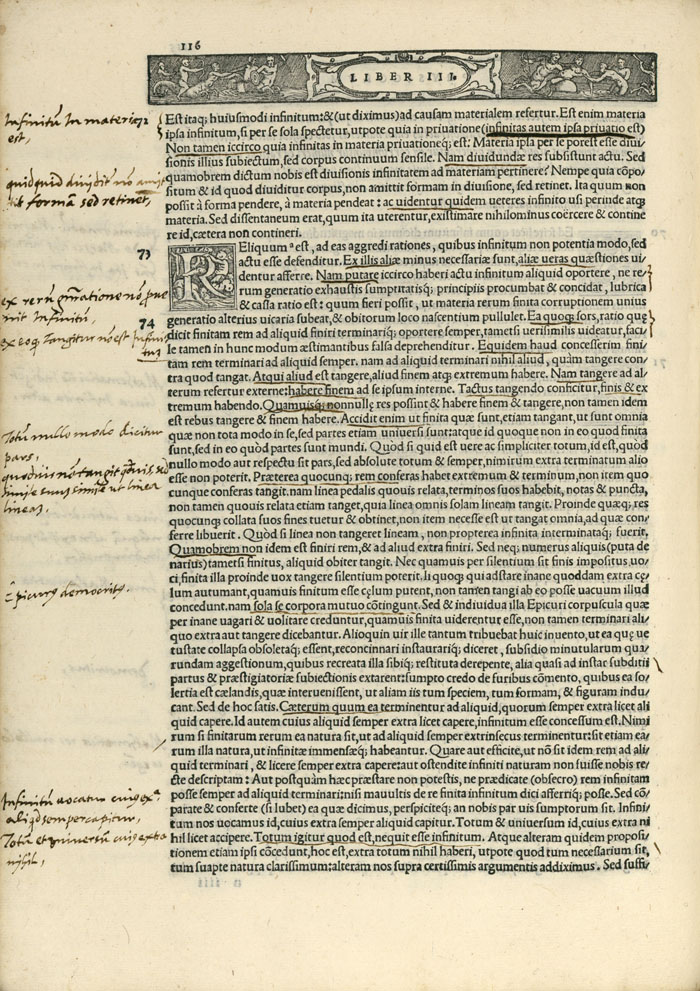 116
LIBER III.
Est itaq; huiusmodi infinitum:&(ut diximus)ad causam materialem refertur. Est enim materia
ipsa infinitum, si per se sola spectetur, utpote quia in priuatione(infinitas autem ipsa priuatio est)
Non tamen iccirco quia infinitas in materia priuationeq; est: Materia ipsa per se porest esse diui/
sionis illius subiectum, sed corpus continuum sensile. Nam diuidundæ res subsistunt actu. Sed
quamobrem dictum nobis est diuisionis infinitatem ad materiam pertinere? Nempe quia cōpo/
situm & id quod diuiditur corpus, non amittit formam in diuisione, sed retinet. Ita quum non
possit à forma pendere, à materia pendeat: ac uidentur quidem ueteres infinito usi perinde atq;
materia. Sed dissentaneum erat, quum ita uterentur, existimare nihilominus coërcere & contine
re id, cætera non contineri.
73
RELiquum est, ad eas aggredi rationes, quibus infinitum non potentia modo, sed
actu esse defenditur. Ex illis aliæ minus necessariæ sunt, aliæ ueras quæstiones ui/
dentur afferre. Nam putare iccirco haberi actu infinitum aliquid oportere, ne re/
rum generatio exhaustis sumptitatisq; principiis procumbat & concidat, lubrica
& cassa ratio est: quum fieri possit, ut materia rerum finita corruptionem unius
generatio alterius uicaria subeat, & obitorum loco nascentium pullulet. Ea quoq; fors, ratio quę
74
dicit finitam rem ad aliquid finiri terminariq; oportere semper, tametsi uerisimilis uideatur, faci/
le tamen in hunc modum æstimantibus falsa deprehenditur. Equidem haud concesserim fini/
tam rem terminari ad aliquid semper. nam ad aliquid terminari nihil aliud, quàm tangere con/
tra quod tangat. Atqui aliud est tangere, aliud finem atq; extremum habere. Nam tangere ad al/
terum refertur externe: habere finem ad se ipsum interne. Tactus tangendo conficitur, finis & ex
tremum habendo. Quamuisq; nonnullę res possint & habere finem & tangere, non tamen idem
est rebus tangere & finem habere. Accidit enim ut finita quæ sunt, etiam tangant, ut sunt omnia
quæ non tota modo in se, sed partes etiam uniuersi sunt: atque id quoque non in eo quod finita
sunt, sed in eo quòd partes sunt mundi. Quòd si quid est uere ac simpliciter totum, id est, quòd
nullo modo aut respectu sit pars, sed absolute totum & semper, nimirum extra terminatum alio
esse non poterit. Præterea quocunq; rem conferas habet extremum & terminum, non item quo
cunque conferas tangit. nam linea pedalis quouis relata, terminos suos habebit, notas & puncta,
non tamen quouis relata etiam tanget, quia linea omnis solam lineam tangit. Proinde quæq; res
quocunq; collata suos fines tuetur & obtinet, non item necesse est ut tangat omnia, ad quæ con/
ferre libuerit. Quòd si linea non tangeret lineam, non propterea infinita interminataq; fuerit.
Quamobrem non idem est finiri rem, & ad aliud extra finiri. Sed neq; numerus aliquis(puta de
narius)tametsi finitus, aliquid obiter tangit. Nec quamuis per silentium sit finis impositus uo/
ci, finita illa proinde uox tangere silentium poterit. Ii quoq; qui adstare inane quoddam extra cę/
lum autumant, quamuis finitum esse cęlum putent, non tamen tangi ab eo posse uacuum illud
concedunt. nam sola se corpora mutuo cōtingunt. Sed & indiuidua illa Epicuri corpuscula quæ
per inane uagari & uolitare creduntur, quamuis finita uiderentur esse, non tamen terminari ali/
quo extra aut tangere dicebantur. Alioquin uir ille tantum tribuebat huic inuento, ut ea quę ue
tustate collapsa obsoletaq; essent, reconcinnari instaurariq; diceret, subsidio minutularum qua/
rundam aggestionum, quibus recreata illa sibiq; restituta derepente, alia quasi ad instar subditii
partus & præstigiatoriæ subiectionis extarent: sumpto credo de furibus cōmento, quibus ea so/
lertia est cælandis, quæ interuenissent, ut aliam iis tum speciem, tum formam, & figuram indu/
cant. Sed de hoc satis. Cæterum quum ea terminentur ad aliquid, quorum semper extra licet ali
quid capere. Id autem cuius aliquid semper extra licet capere, infinitum esse concessum est. Nimi
rum si finitarum rerum ea natura sit, ut ad aliquid semper extrinsecus terminentur: sit etiam ea/
rum illa natura, ut infinitæ immensæq; habeantur. Quare aut efficite, ut nō sit idem rem ad ali/
quid terminari, & licere semper extra capere: aut ostendite infiniti naturam non fuisse nobis re/
cte descriptam: Aut postquàm hæc præstare non potestis, ne prædicate (obsecro) rem infinitam
posse semper ad aliquid terminari: nisi mauultis de re finita infinitum dici afferriq; posse. Sed cō/
parate & conferte (si lubet) ea quæ dicimus, perspicietiq; an nobis par uis sumptorum sit. Infini/
tum nos uocamus id, cuius extra semper aliquid capitur. Totum & uniuersum id, cuius extra ni
hil licet accipere. Totum igitur quod est, nequit esse infinitum. Atque alteram quidem proposi/
tionem etiam ipsi cōcedunt, hoc est, extra totum nihil haberi, utpote quod tum necessarium sit,
tum suapte natura clarissimum: alteram nos supra certissimis argumentis addiximus. Sed suffi/
Infinitū In materia
est,
quidquid diuiditr nō amit
tit formā sed retinet,
Totū nullo modo dicitur
pars,
Epicurus democritus.
Infinitū uocatur cuius exª
aliqd semper capitur,
Totū et uniuersū cuius extra
nihil,